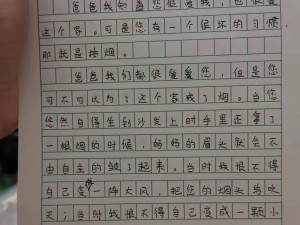 爸爸我知道您很爱我，也很爱
这个家。可是您有一个很坏的习惯
那就是抽烟。
爸爸我们都很爱爱您，但是您
可不可以为了这个家戒了烟。当您
悠然自得坐到沙发上时手里还拿了
一根烟的时候，妈妈的眉头就会不
由自主的皱了起来。当时我恨不得
自己变成一阵大风，把您的烟头给吹
灭；当时我恨不得自己变成一颗小